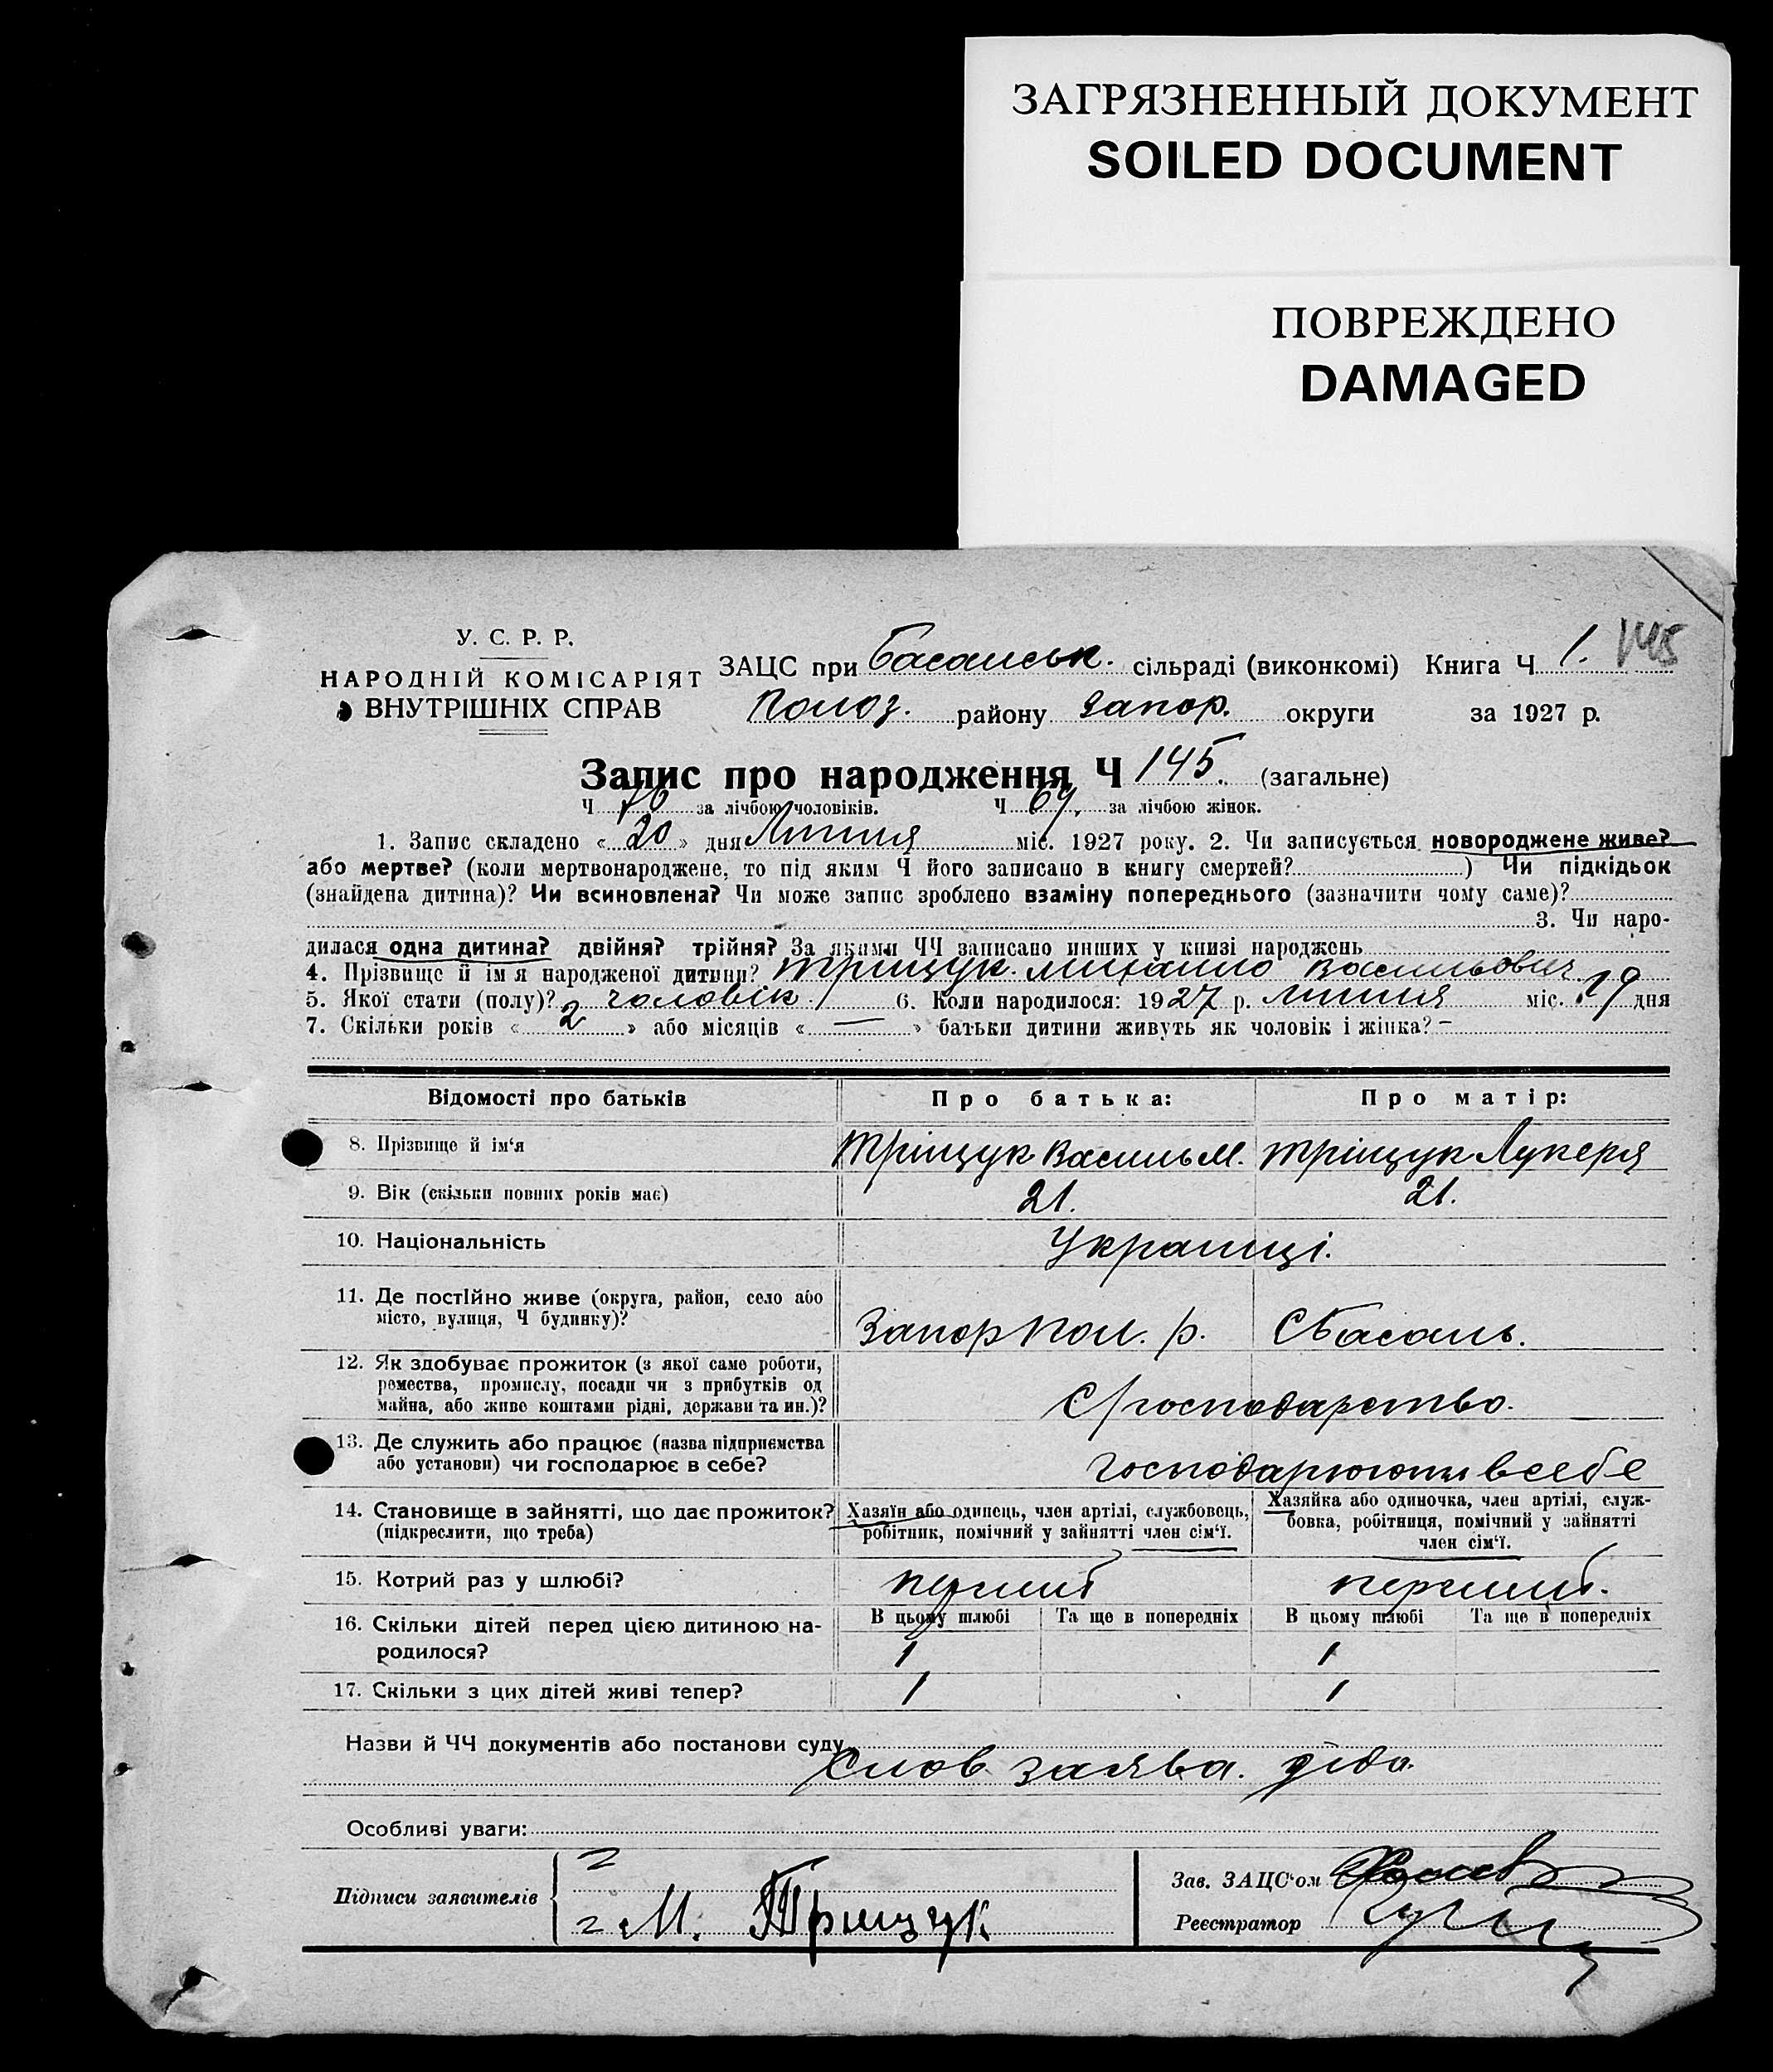 ЗАГРЯЗНЕННЫЙ ДОКУМЕНТ
SOILED DOCUMENT
ПОВРЕЖДЕНО
DAMAGED
У. С. Р. Р.
НАРОДНІЙ КОМІСАРІЯТ
ВНУТРІШНІХ СПРАВ
ЗАЦС при Басанськ. сільраді (виконкомі) Книга Ч 1. 145
Полоз. району Запор. округи за 1927 р.
Запис про народження Ч 145. (загальне)
Ч 76 за лічбою чоловіків. Ч 69. за лічбою жінок.
1. Запис складено « 20 » дня Липня міс. 1927 року. 2. Чи записується новороджене живе?
або мертве? (коли мертвонароджене, то під яким Ч його записано в книгу смертей? ) Чи підкідьок
(знайдена дитина)? Чи всиновлена? Чи може запис зроблено взаміну попереднього (зазначити чому саме)?
3. Чи наро-
дилася одна дитина? двійня? трійня? За якими ЧЧ записано инших у книзі народжень
4. Прізвище й ім'я народженої дитини? Тріщук. Михайло Васильович
5. Якої стати (полу)? чоловік. 6. Коли народилося: 1927 р. липня міс. 19 дня
7. Скільки років « 2 » або місяців « — » батьки дитини живуть як чоловік і жінка? –
Відомості про батьків Про батька: Про матір:
8. Прізвище й ім'я Тріщук Василь М. Тріщук Лукеря
9. Вік (скільки повних років має) 21. 21.
10. Національність Українці.
11. Де постійно живе (округа, район, село або
місто, вулиця, Ч будинку)? Запор Пол. р. С Басань.
12. Як здобуває прожиток (з якої саме роботи,
ремества, промислу, посади чи з прибутків од
майна, або живе коштами рідні, держави та ин.)? С/господарство.
13. Де служить або працює (назва підприємства
або установи) чи господарює в себе? господарюють в себе
14. Становище в зайнятті, що дає прожиток?
(підкреслити, що треба)
Хазяїн або одинець, член артілі, службовець,
робітник, помічний у зайнятті член сім'ї.
Хазяйка або одиночка, член артілі, служ-
бовка, робітниця, помічний у зайнятті
член сім'ї.
15. Котрий раз у шлюбі? перший перший.
16. Скільки дітей перед цією дитиною на-
родилося?
В цьому шлюбі Та ще в попередніх В цьому шлюбі Та ще в попередніх
1 1
17. Скільки з цих дітей живі тепер? 1 1
Назви й ЧЧ документів або постанови суду
Слов заява. діда.
Особливі уваги:
Підписи заявителів
М. Трищук
Зав. ЗАЦС'ом
Реєстратор